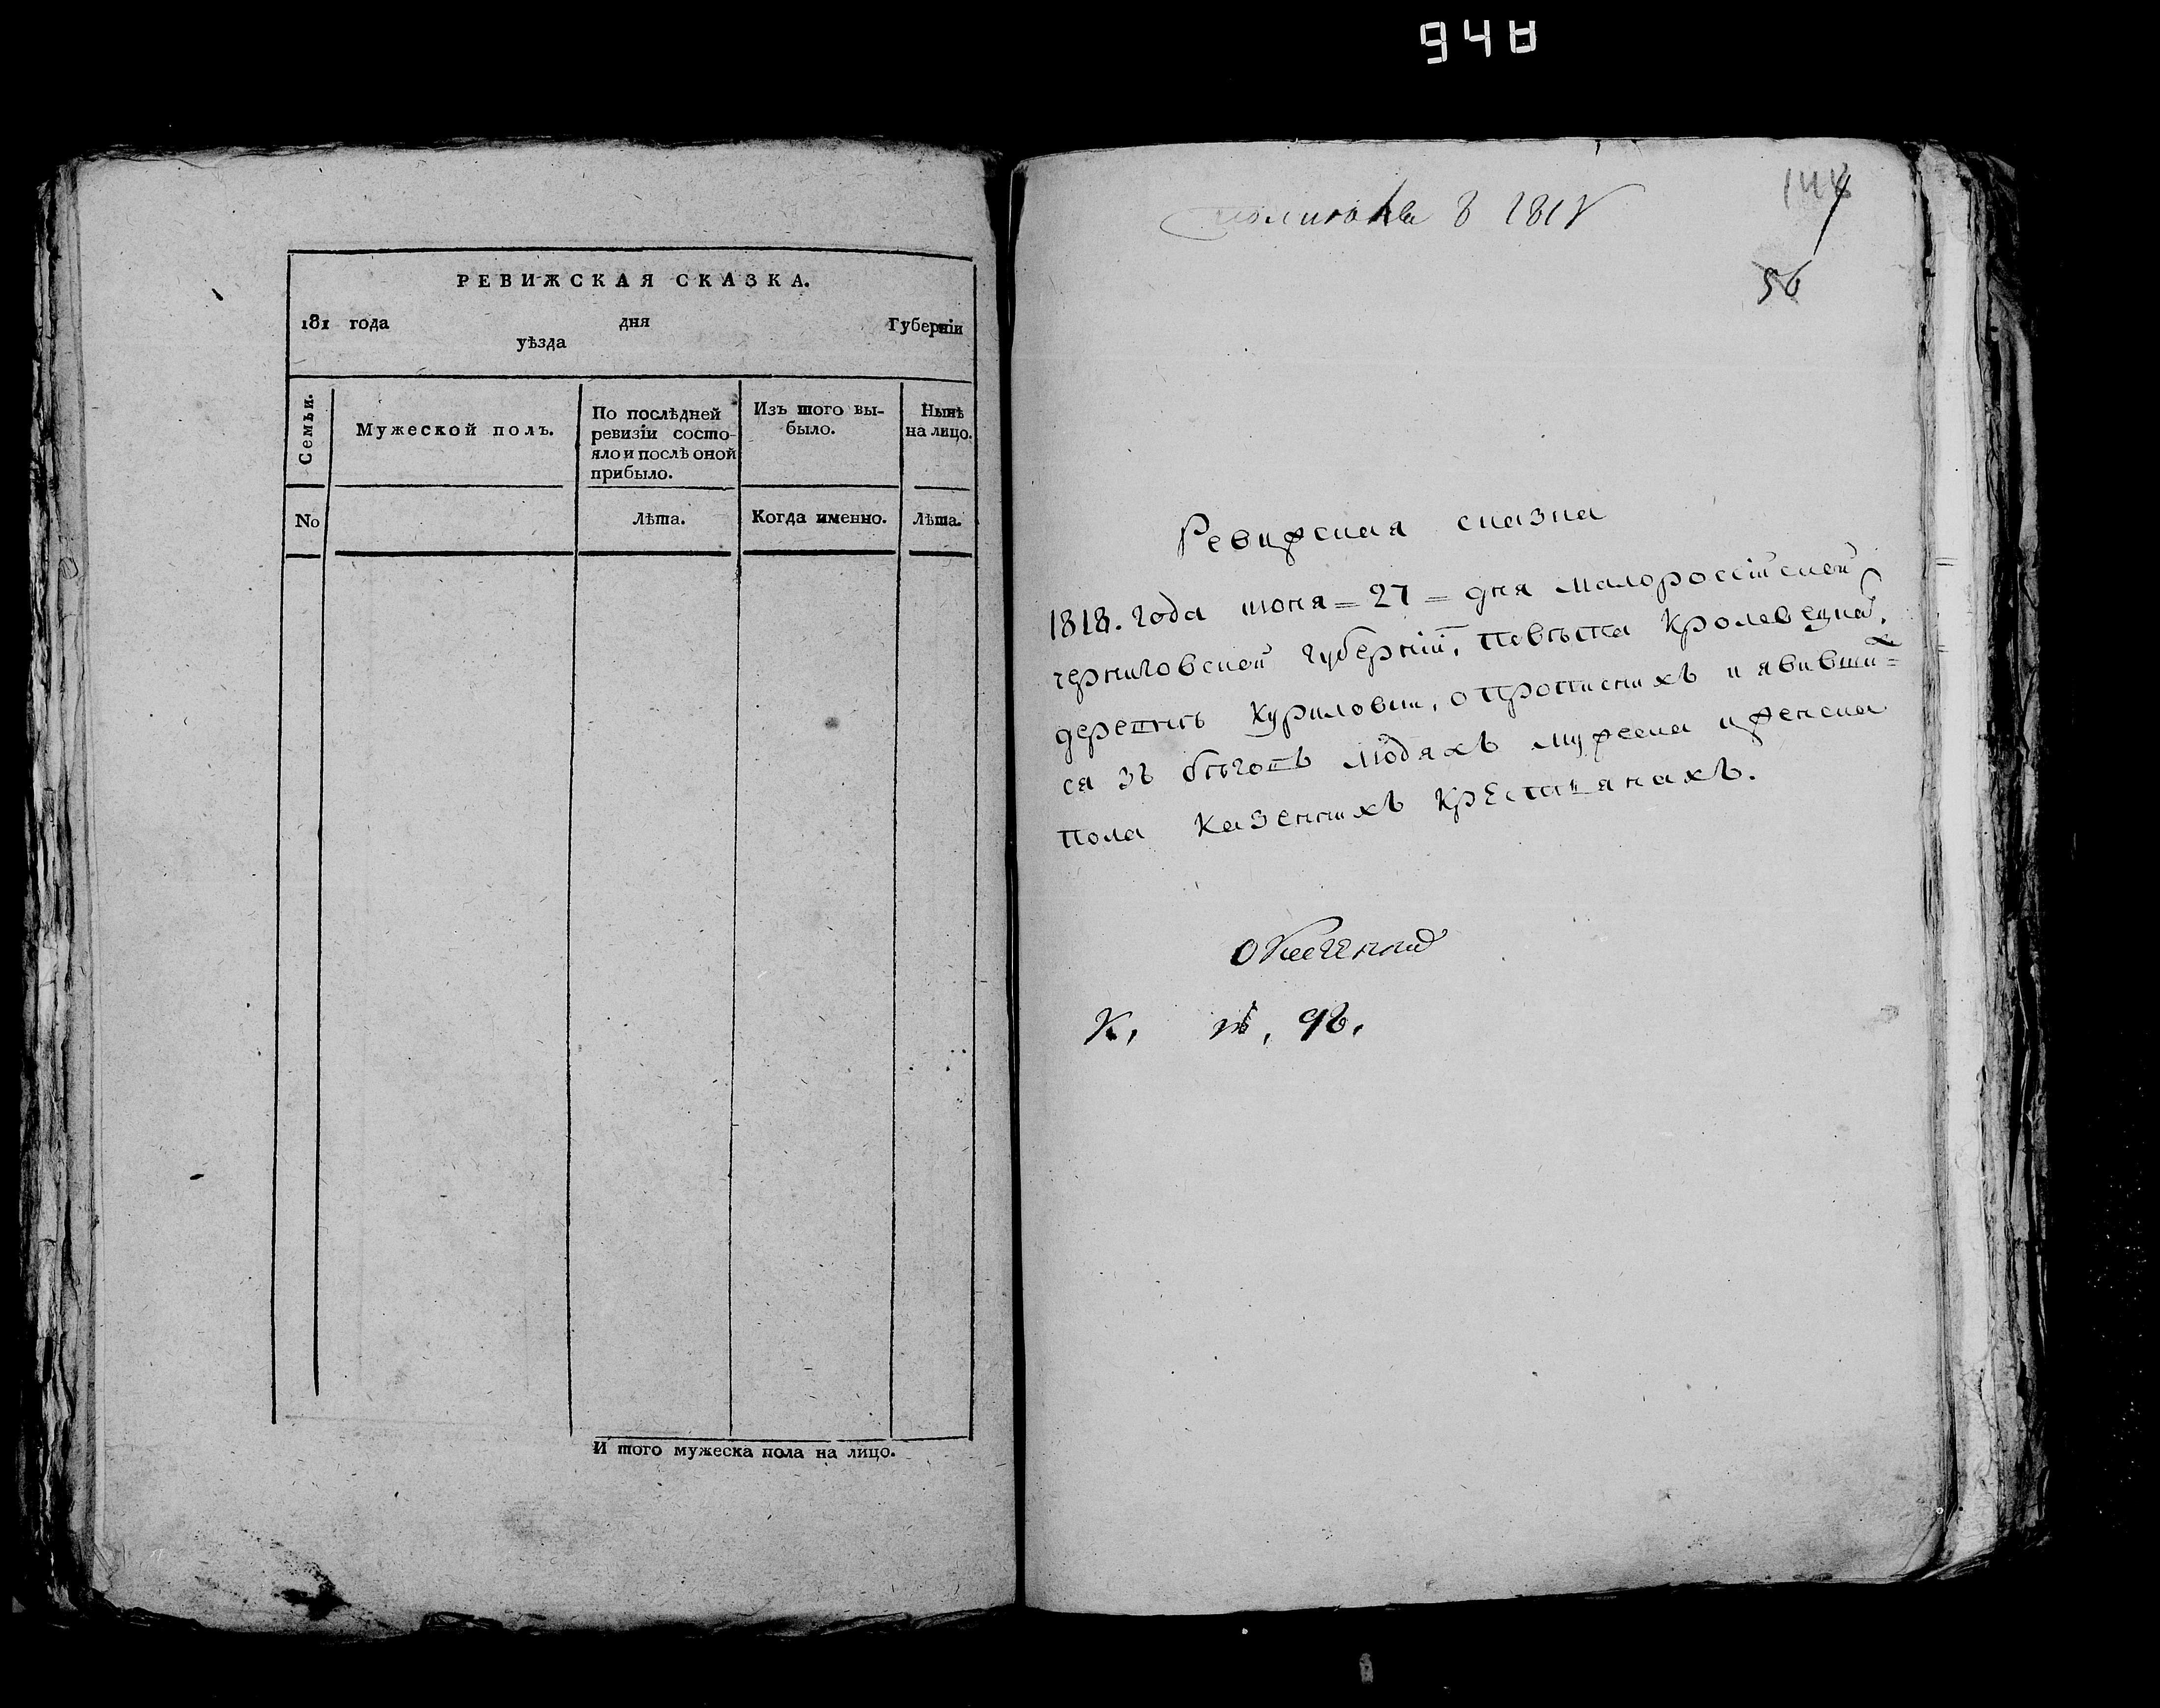 948
РЕВИЖСКАЯ СКАЗКА.
181 года дня Губернїи
уѣзда
Семьи.
Мужеской полъ.
По послѣдней
ревизїи состо-
яло и послѣ оной
прибыло.
Изъ того вы-
было.
Нынѣ
на лицо.
No
Лѣта.
Когда именно.
Лѣта.
И того мужеска пола на лицо.
144
56
Ревижская сказка
1818. года июня = 27 = дня малоросcїйской
черниговской губернїи, повѣта Кролевецка,
деревнѣ Куриловки, о прописнихъ и явивши=х
ся зъ бѣговъ людяхъ мужеска и женска
пола казеннихъ крестьянахъ.
К,